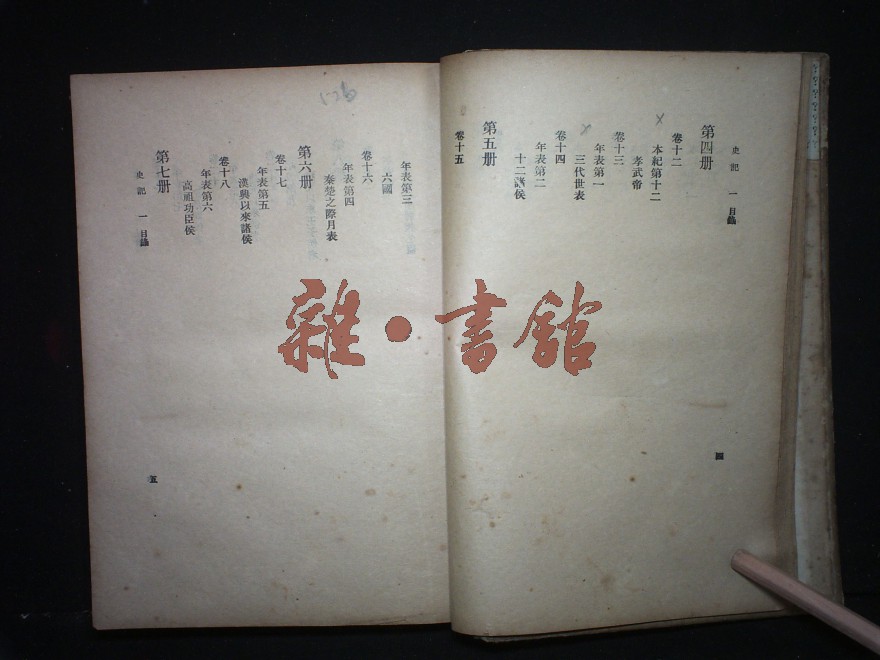 史記 一 目錄
第四册
卷十二
本紀第十二
孝武帝
卷十三
年表第一
三代世表
卷十四
年表第二
十二諸侯
第五册
卷十五
四
年表第三
六國
卷十六
年表第四
秦楚之際月表
第六册
卷十七
年表第五
漢興以來諸侯
卷十八
年表第六
高祖功臣侯
第七册
史記 一 目錄
五
126
雜·書館